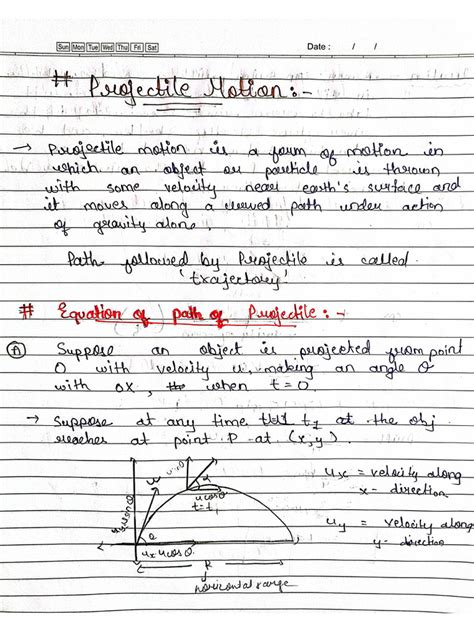 Sun Mon Tue Wed Thu Fri Sat
Date : / /
# Projectile Motion:-
→ Projectile motion is a form of motion in
which an object or particle is thrown
with some velocity near earth's surface and
it moves along a curved path under action
of gravity alone.
Path followed by Projectile is called
'trajectory'
# Equation of path of Projectile :-
Suppose an object is projected from point
O with velocity u, making an angle θ
with OX, when t=0.
→ Suppose at any time t1 at the obj
reaches at point P at (x,y).
ux = velocity along
x - direction
uy = velocity along
y- direction
u
α
ucosθ
t=t1
usinθ
θ
ux ucosθ
R
horizontal range